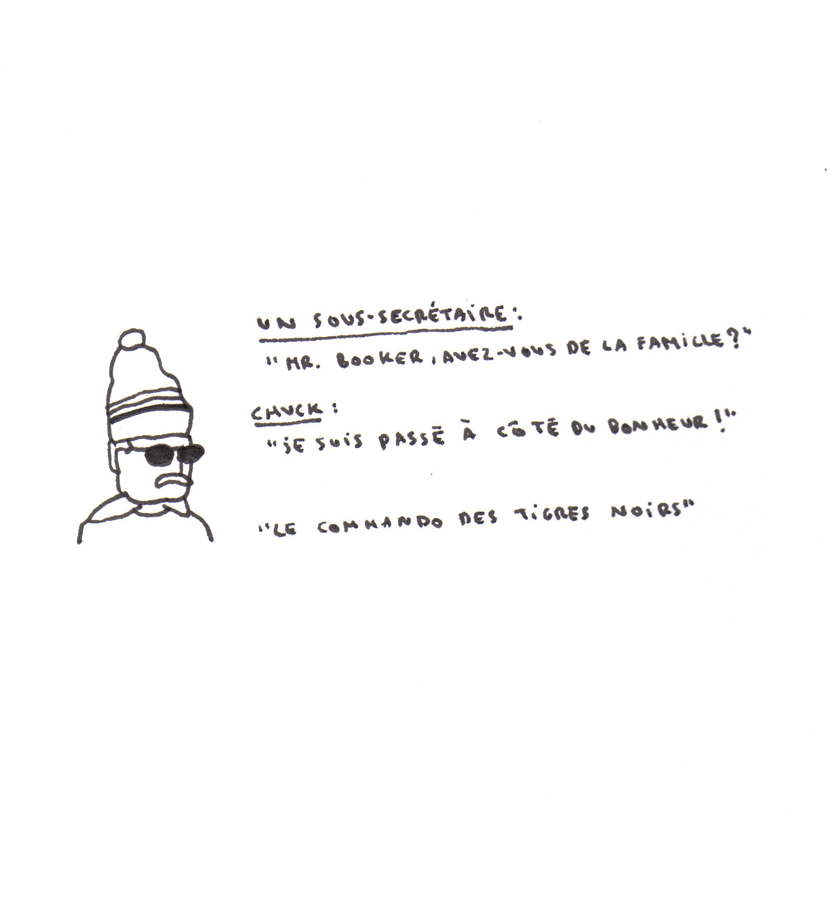 UN SOUS-SECRÉTAIRE:
"MR. BOOKER, AVEZ-VOUS DE LA FAMILLE?"
CHUCK:
"JE SUIS PASSÉ À CÔTÉ DU BONHEUR!"
"LE COMMANDO DES TIGRES NOIRS"